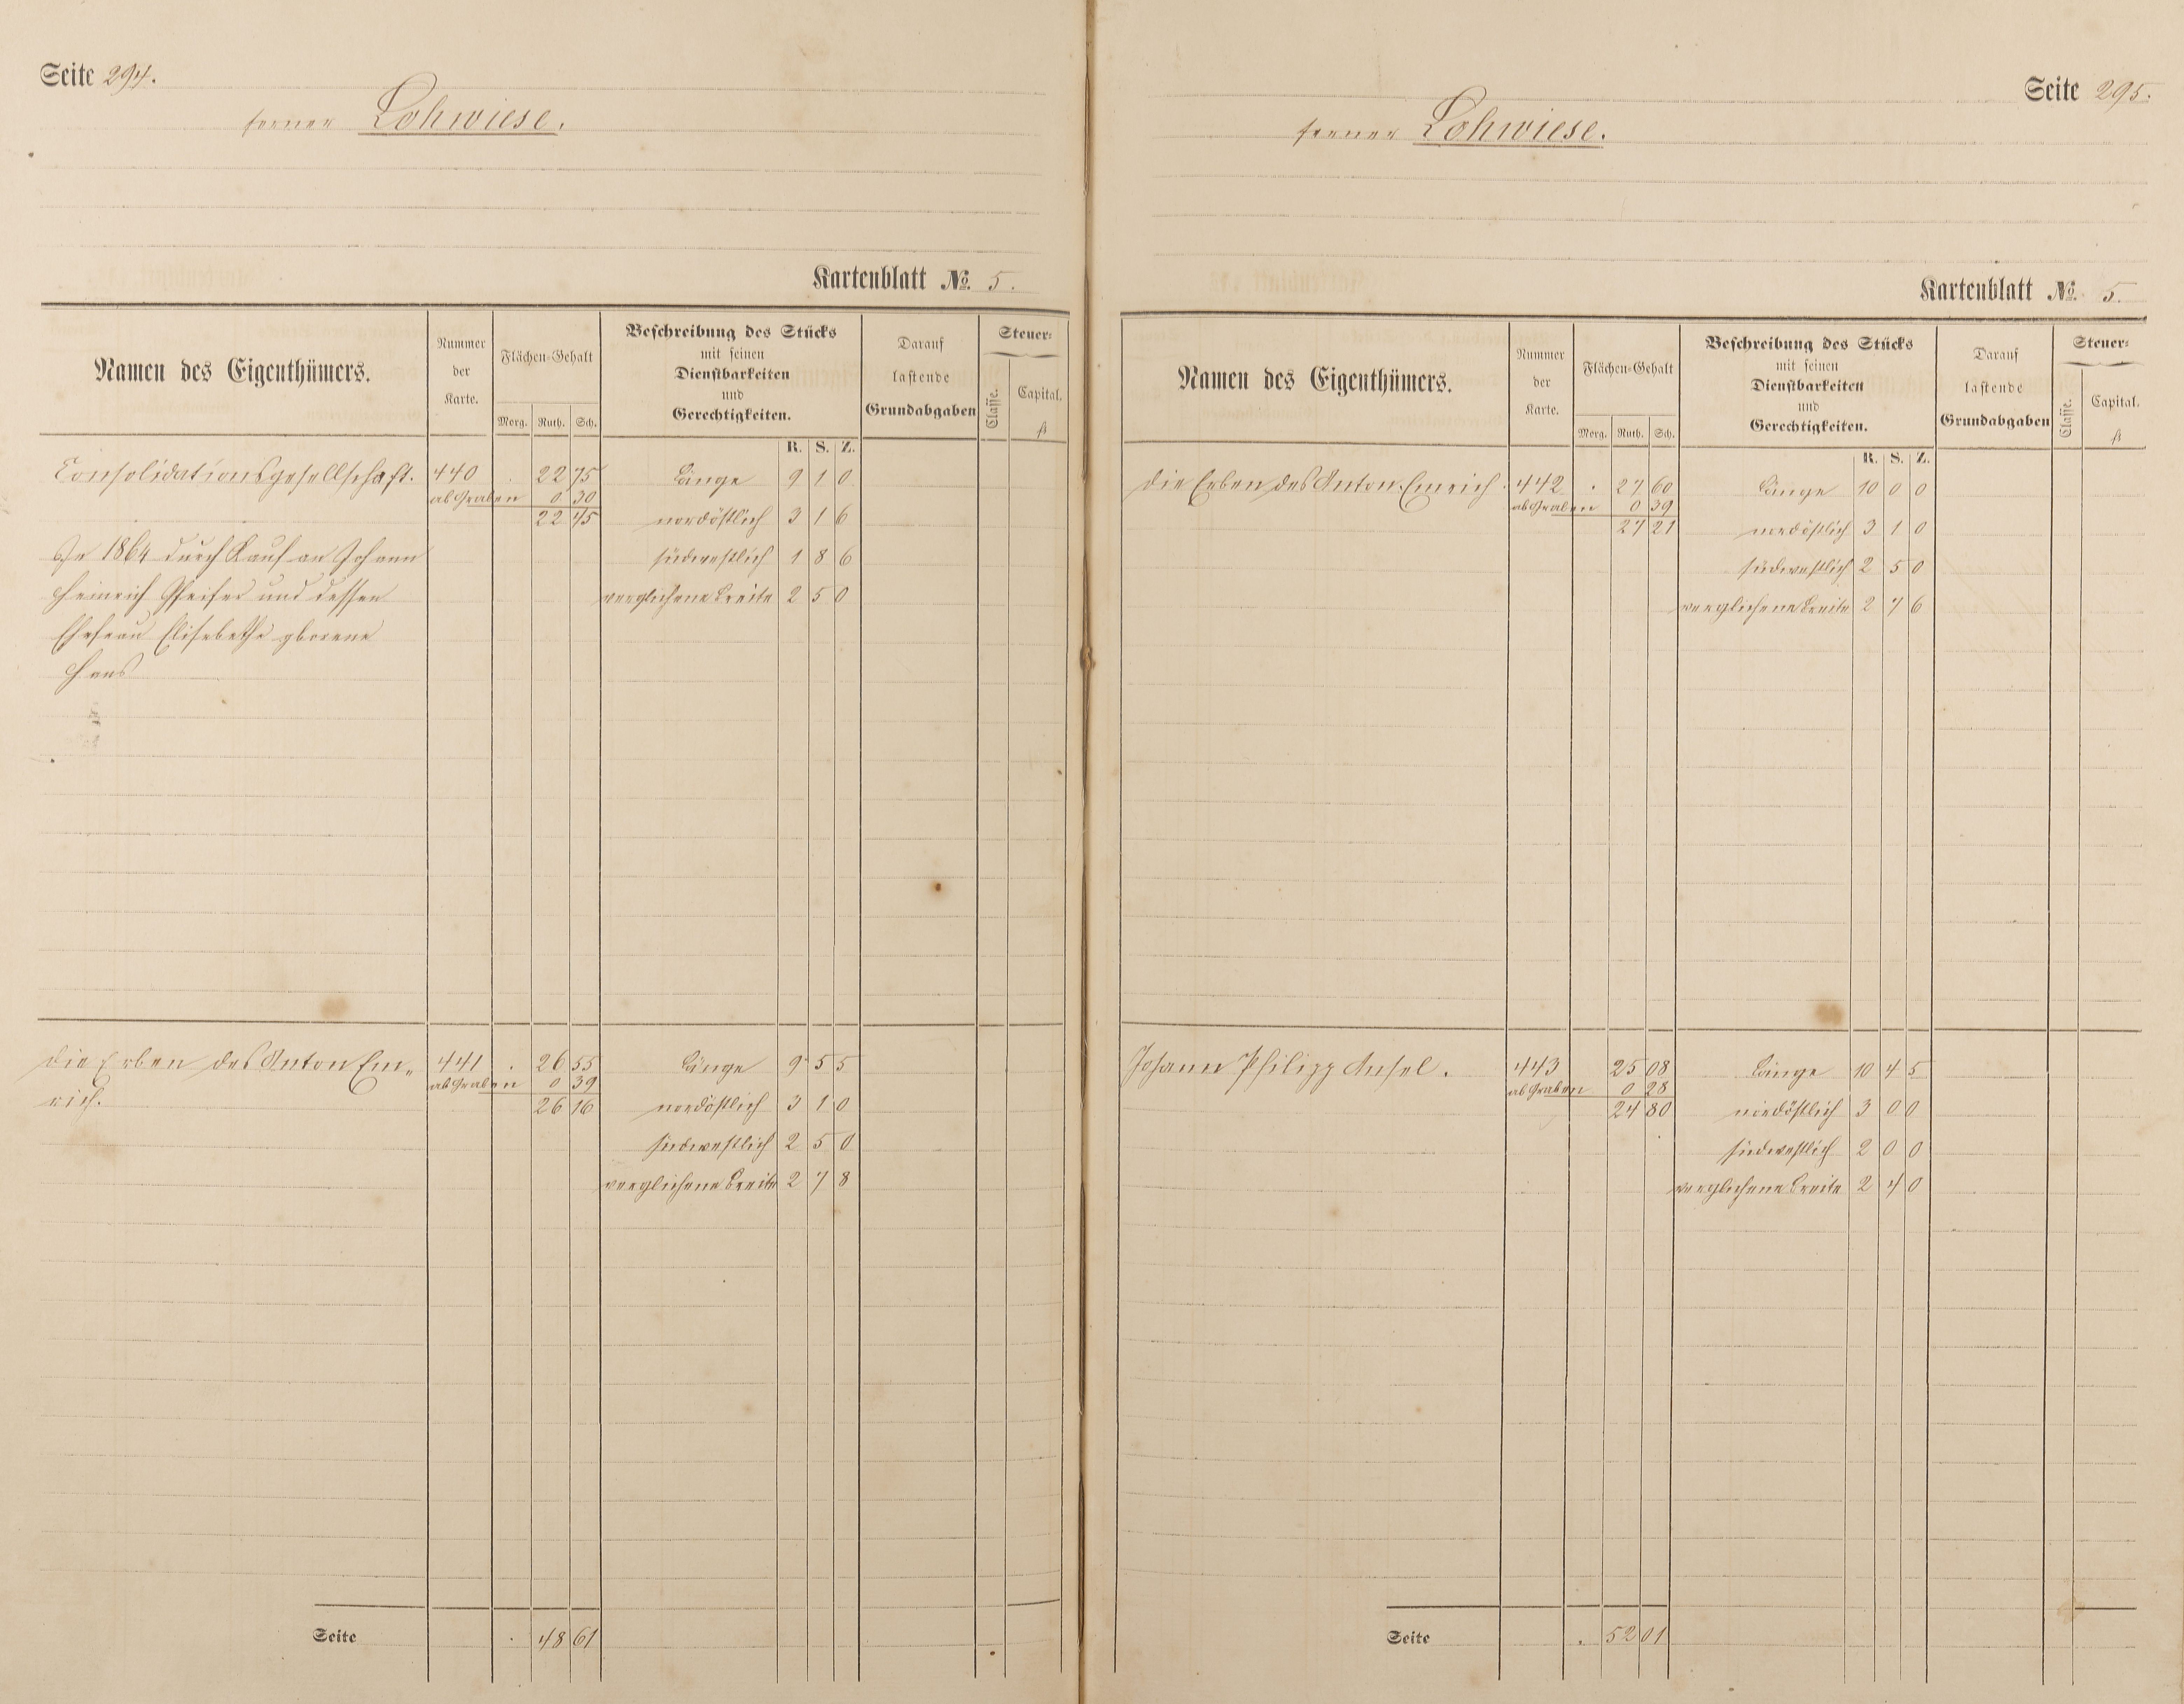 Seite 294.
ferner Lohwiese.
Kartenblatt No. 5.
Namen des Eigenthümers.
Nummer der Karte.
Flächen-Gehalt
Morg. Ruth. Sch.
Beschreibung des Stücks
mit seinen
Dienstbarkeiten
und
Gerechtigkeiten.
R. S. Z.
Darauf
lastende
Grundabgaben
Steuer-
Classe. Capital.
fl
Consolidationsgesellschaft. 440 . 22 75 Länge 9 1 0
ab Graben 0 30
22 45 nordöstlich 3 1 6
In 1864 durch Kauf an Johann südwestlich 1 8 6
Heinrich Pfeifer und dessen verglichene Breite 2 5 0
Ehefrau Elisabethe geborene
Hans
Die Erben des Anton Em- 441 . 26 55 Länge 9 5 5
ab Graben 0 39
rich. 26 16 nordöstlich 3 1 0
südwestlich 2 5 0
verglichene Breite 2 7 8
Seite . 48 61
Seite 295.
ferner Lohwiese.
Kartenblatt No. 5.
Namen des Eigenthümers.
Nummer der Karte.
Flächen-Gehalt
Morg. Ruth. Sch.
Beschreibung des Stücks
mit seinen
Dienstbarkeiten
und
Gerechtigkeiten.
R. S. Z.
Darauf
lastende
Grundabgaben
Steuer-
Classe. Capital.
fl
Die Erben des Anton Emrich. 442 . 27 60 Länge 10 0 0
ab Graben 0 39
27 21 nordöstlich 3 1 0
südwestlich 2 5 0
verglichene Breite 2 7 6
Johann Philipp Ansel. 443 25 08 Länge 10 4 5
ab Graben 0 28
24 80 nordöstlich 3 0 0
südwestlich 2 0 0
verglichene Breite 2 4 0
Seite . 52 01